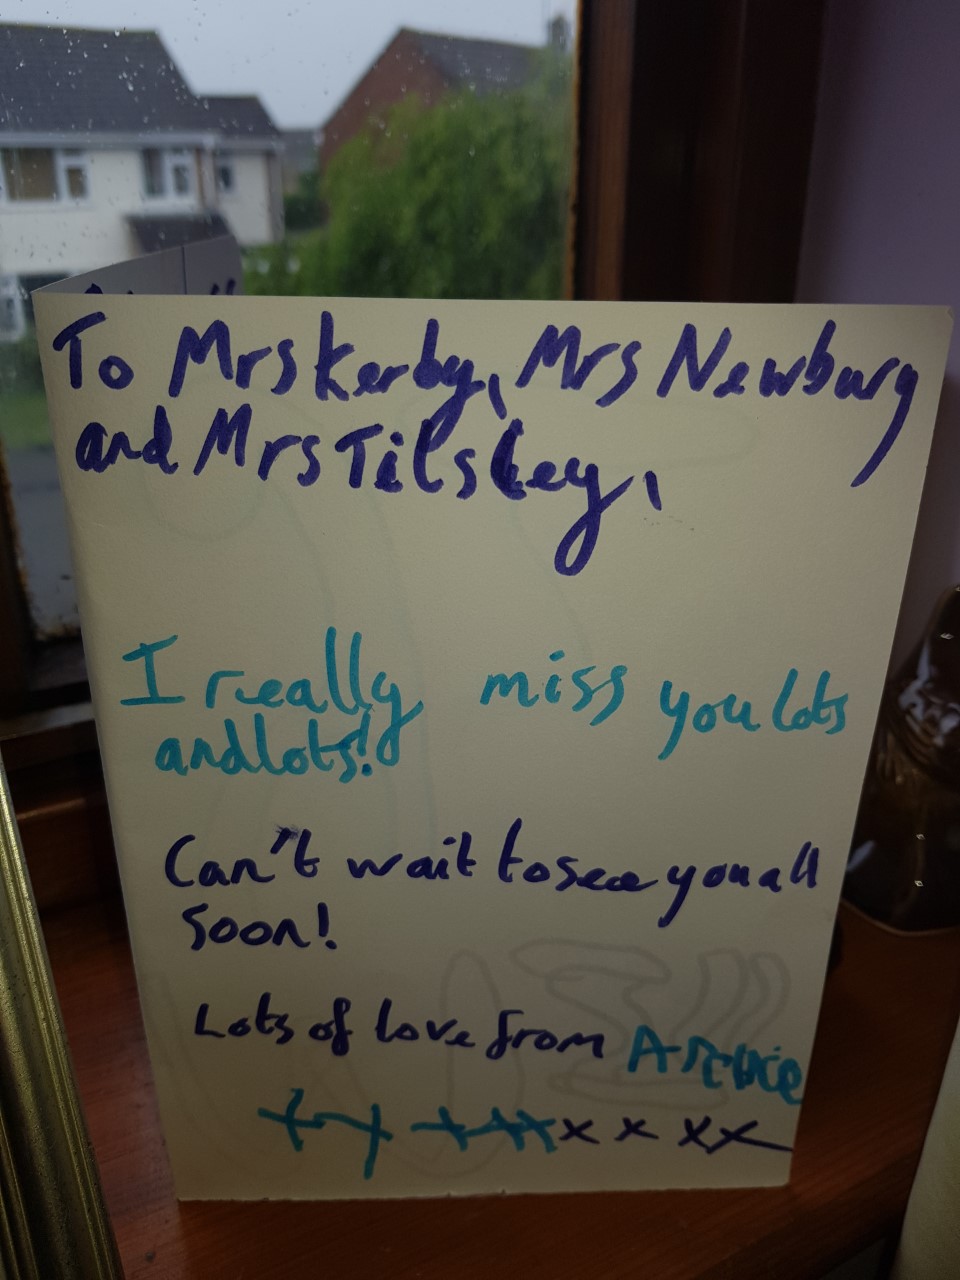 To Mrs Kerby, Mrs Newbury
and Mrs Tilsley,
I really miss you lots
and lots!
Can't wait to see you all
soon!
Lots of love from Archie
x x x x x x x x x